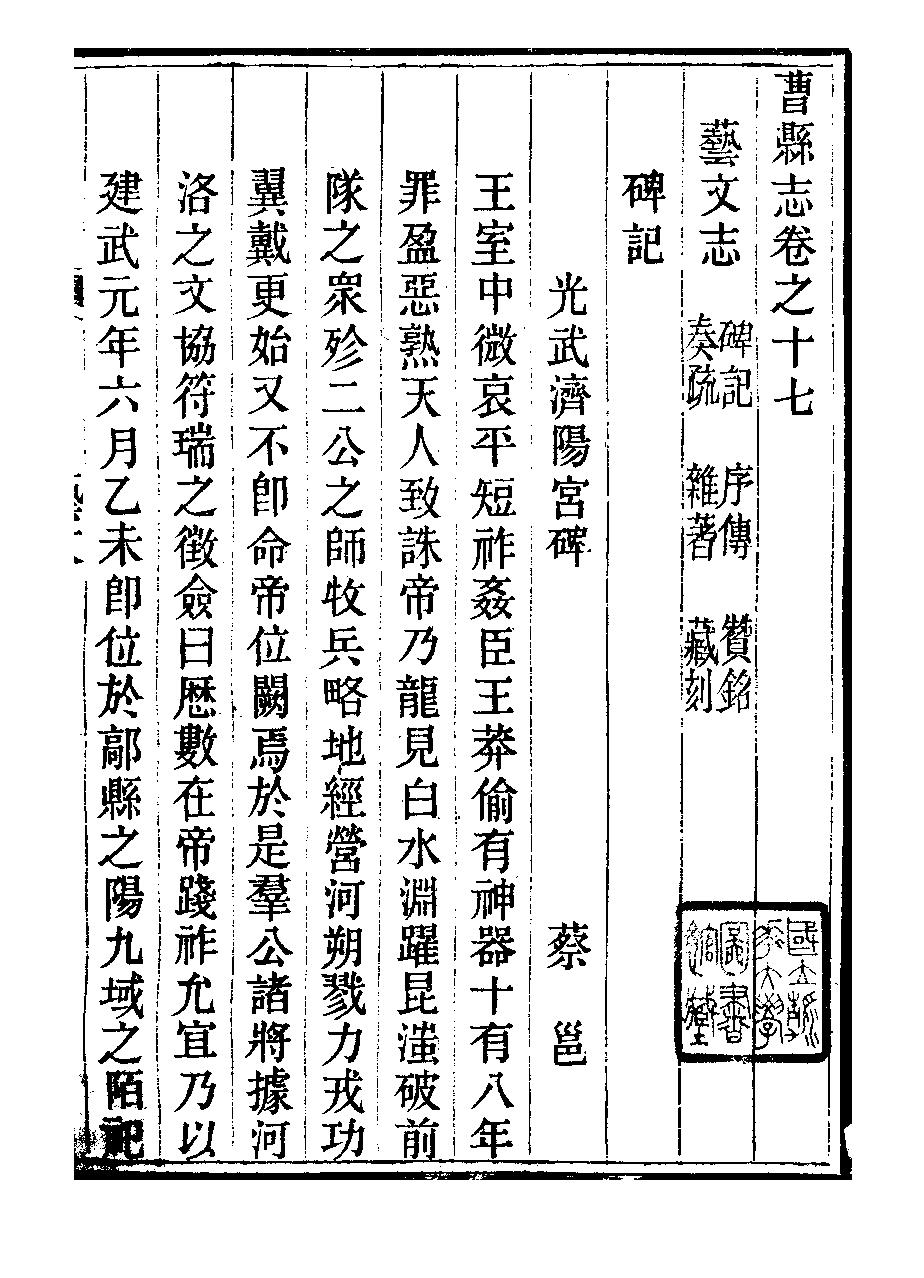 曹縣志卷之十七
藝文志 碑記 序傳 贊銘
奏疏 雜著 藏刻
碑記
光武濟陽宮碑 蔡邕
王室中微哀平短祚姦臣王莽偷有神器十有八年
罪盈惡熟天人致誅帝乃龍見白水淵躍昆滍破前
隊之眾殄二公之師收兵略地經營河朔戮力戎功
翼戴更始又不卽命帝位闕焉於是羣公諸將據河
洛之文協符瑞之徵僉曰歷數在帝踐祚允宜乃以
建武元年六月乙未卽位於鄗縣之陽九域之陌祀